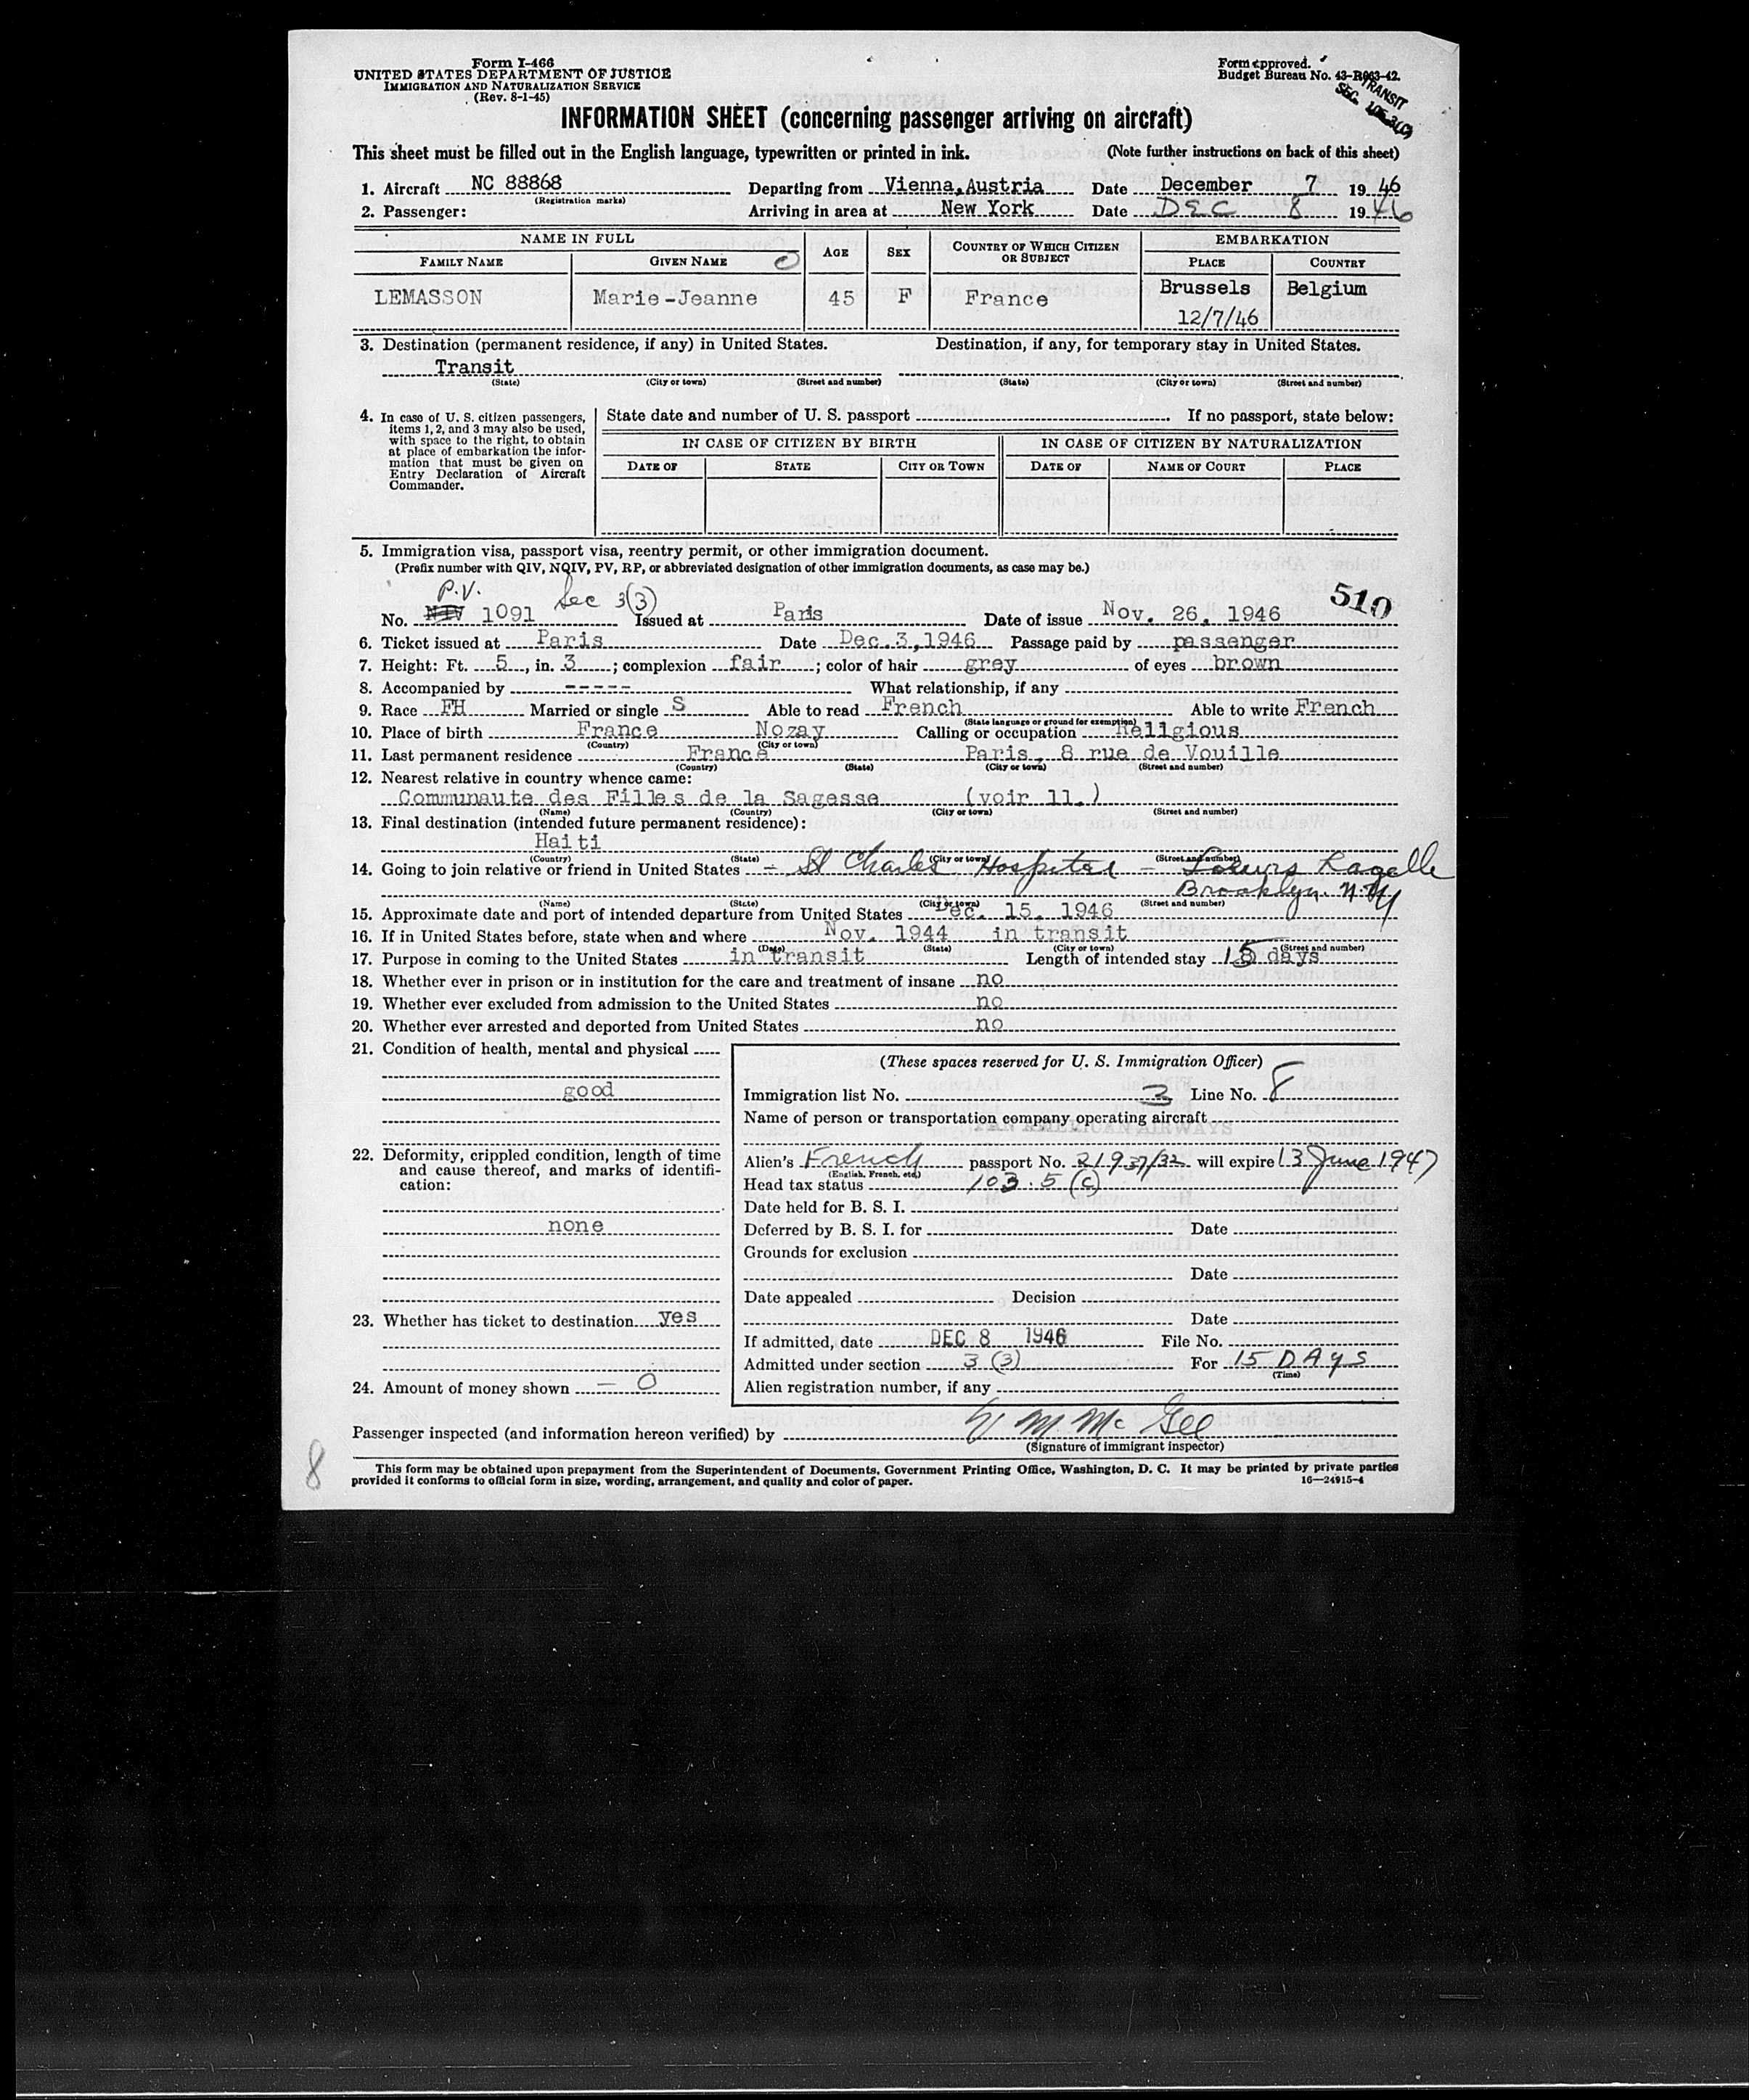 Form I-466
UNITED STATES DEPARTMENT OF JUSTICE
IMMIGRATION AND NATURALIZATION SERVICE
(Rev. 8-1-45)
Form approved.
Budget Bureau No. 43-R063-42.
TRANSIT
SEC.
INFORMATION SHEET (concerning passenger arriving on aircraft)
This sheet must be filled out in the English language, typewritten or printed in ink. (Note further instructions on back of this sheet)
1. Aircraft NC 88868 Departing from Vienna,Austria Date December 7 19 46
(Registration marks)
2. Passenger: Arriving in area at New York Date DEC 8 19 46
NAME IN FULL AGE SEX COUNTRY OF WHICH CITIZEN OR SUBJECT EMBARKATION
FAMILY NAME GIVEN NAME PLACE COUNTRY
LEMASSON Marie-Jeanne 45 F France Brussels Belgium
12/7/46
3. Destination (permanent residence, if any) in United States. Destination, if any, for temporary stay in United States.
Transit
(State) (City or town) (Street and number) (State) (City or town) (Street and number)
4. In case of U. S. citizen passengers, items 1, 2, and 3 may also be used, with space to the right, to obtain at place of embarkation the information that must be given on Entry Declaration of Aircraft Commander.
State date and number of U. S. passport If no passport, state below:
IN CASE OF CITIZEN BY BIRTH IN CASE OF CITIZEN BY NATURALIZATION
DATE OF STATE CITY OR TOWN DATE OF NAME OF COURT PLACE
5. Immigration visa, passport visa, reentry permit, or other immigration document.
(Prefix number with QIV, NQIV, PV, RP, or abbreviated designation of other immigration documents, as case may be.)
P.V. Sec 3(3) 510
No. NIV 1091 Issued at Paris Date of issue Nov. 26, 1946
6. Ticket issued at Paris Date Dec.3,1946 Passage paid by passenger
7. Height: Ft. 5, in. 3; complexion fair; color of hair grey of eyes brown
8. Accompanied by ----- What relationship, if any
9. Race FH Married or single S Able to read French Able to write French
(State language or ground for exemption)
10. Place of birth France Nozay Calling or occupation Religious
(Country) (City or town)
11. Last permanent residence France Paris, 8 rue de Vouille
(Country) (State) (City or town) (Street and number)
12. Nearest relative in country whence came:
Communaute des Filles de la Sagesse (voir 11.)
(Name) (Country) (City or town) (Street and number)
13. Final destination (intended future permanent residence):
Haiti
(Country) (State) (City or town) (Street and number)
14. Going to join relative or friend in United States - St Charles Hospital -
Brooklyn. N.Y
(Name) (State) (City or town) (Street and number)
15. Approximate date and port of intended departure from United States Dec. 15, 1946
16. If in United States before, state when and where Nov. 1944 in transit
(Date) (State) (City or town) (Street and number)
17. Purpose in coming to the United States in transit Length of intended stay 15 days
18. Whether ever in prison or in institution for the care and treatment of insane no
19. Whether ever excluded from admission to the United States no
20. Whether ever arrested and deported from United States no
21. Condition of health, mental and physical
good
22. Deformity, crippled condition, length of time and cause thereof, and marks of identification:
none
23. Whether has ticket to destination yes
24. Amount of money shown - 0
(These spaces reserved for U. S. Immigration Officer)
Immigration list No. 3 Line No. 8
Name of person or transportation company operating aircraft
Alien's French passport No. 21937/32 will expire 13 June 1947
(English, French, etc.)
Head tax status 103.5(c)
Date held for B. S. I.
Deferred by B. S. I. for Date
Grounds for exclusion
Date
Date appealed Decision
Date
If admitted, date DEC 8 1946 File No.
Admitted under section 3 (3) For 15 DAYS
(Time)
Alien registration number, if any
Passenger inspected (and information hereon verified) by M Mc Gee
(Signature of immigrant inspector)
8
This form may be obtained upon prepayment from the Superintendent of Documents, Government Printing Office, Washington, D. C. It may be printed by private parties
provided it conforms to official form in size, wording, arrangement, and quality and color of paper. 16—24915-4